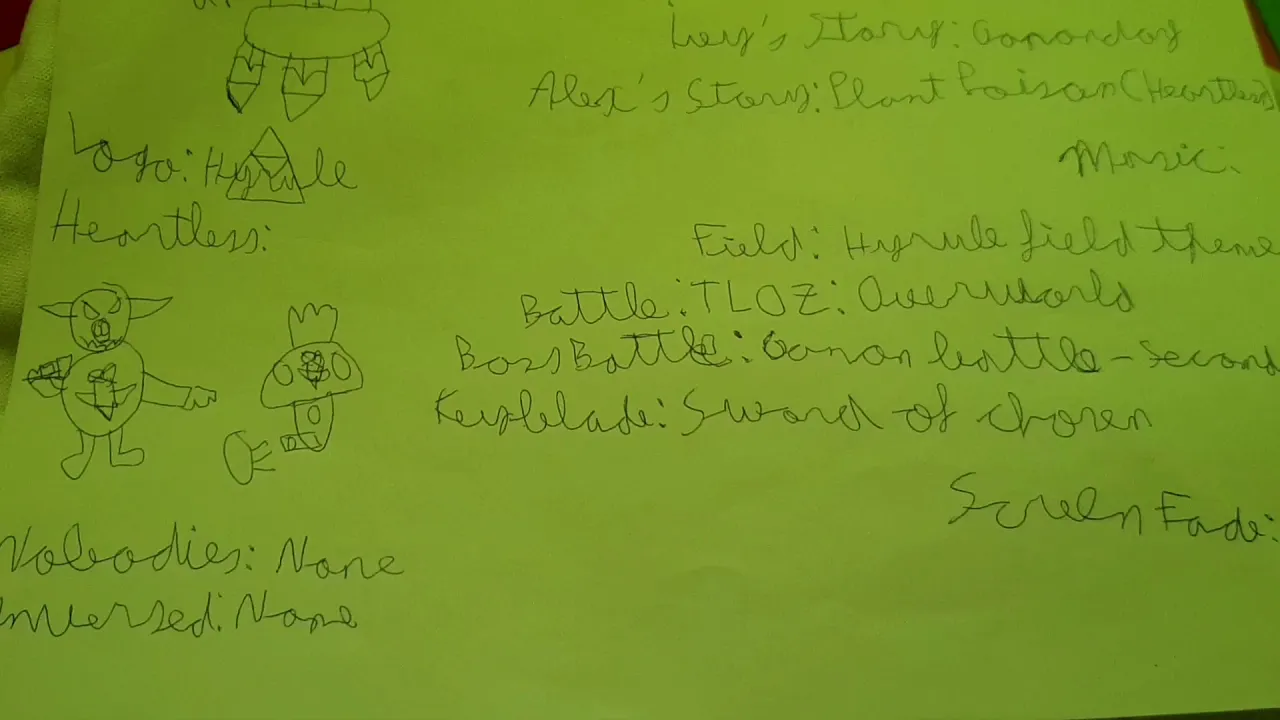 Logo: Hyrule
Heartless:
Nobodies: None
Inversed: None
Story: Ganondorf
Alex's Story: Plant Poison (Heartless)
Music:
Field: Hyrule field theme
Battle: TLOZ: Overworld
Boss Battle: Ganon battle - second
Keyblade: Sword of chosen
Screen Fade: